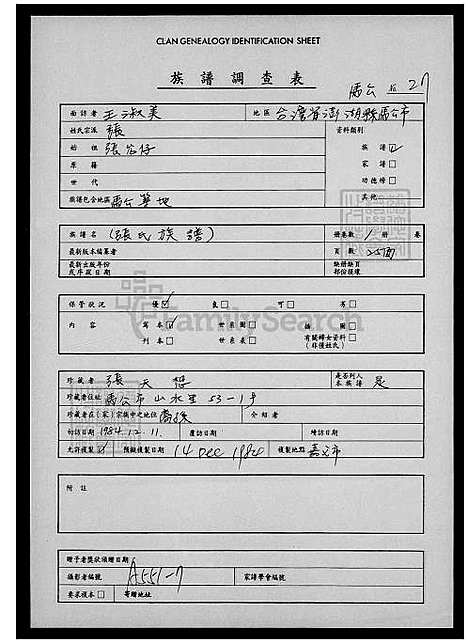 CLAN GENEALOGY IDENTIFICATION SHEET
族譜調查表
馬公 27
面訪者 王淑美 地區 台灣省澎湖縣馬公市
姓氏宗派 張 資料類別
始祖 張公仔 族譜☑
原籍 家譜□
世代 功德榜□
族譜包含地區 馬公等地 其他
族譜名 (張氏族譜) 冊卷數 1 冊 卷
最新版本編纂者 頁數 25面
最新出版年份 缺冊缺頁
或序跋日期 部份後塚
保管狀況 優☑ 良□ 可□ 劣□
內容 寫本☑ 世系圖□ 插圖□
刊本□ 世系表□ 有關婦女資料□
(非僅姓氏)
FamilySearch
珍藏者 張天 是否列入 是
本族譜
珍藏者住址 馬公市山水里53-1号
珍藏者在(家)宗族中之地位 裔孫 介紹者
初訪日期 1984.12.11. 覆訪日期 續訪日期
允許複製☑ 預擬複製日期 14 Dec 1984 複製地點 嘉义市
附註
贈予者獎狀頒贈日期
攝影者編號 A551-7 家譜學會編號
要求複本□ 寄贈地址